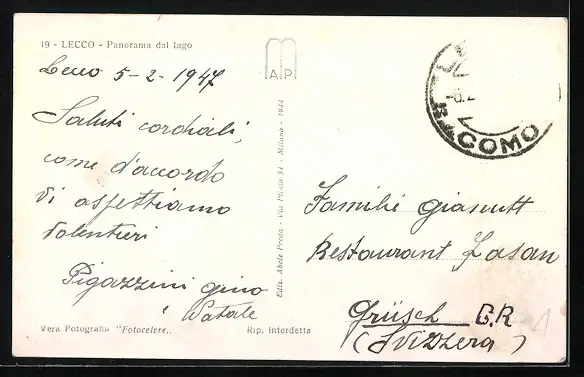 19 - LECCO - Panorama dal lago
Lecco 5-2-1947
Saluti cordiali,
come d'accordo
Vi aspettiamo
volentieri
Pigazzini Gino
Natale
Vera Fotografia "Fotocelere"..
Rip. Interdetta
MAP
Ediz. Abele Preda - Via Plinio 34 - Milano - 1944
COMO
Familie Gianutt
Restaurant
Grüsch G.R
(Svizzera)
1